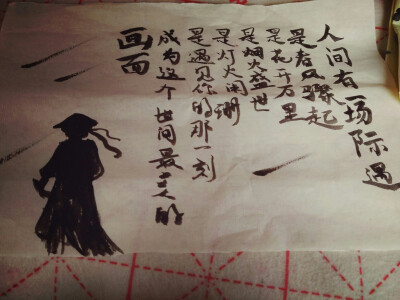 人间有一场际遇
是春风骤起
是花开万里
是烟火盛世
是灯火阑珊
是遇见你的那一刻
成为这个世间最立人的
画面